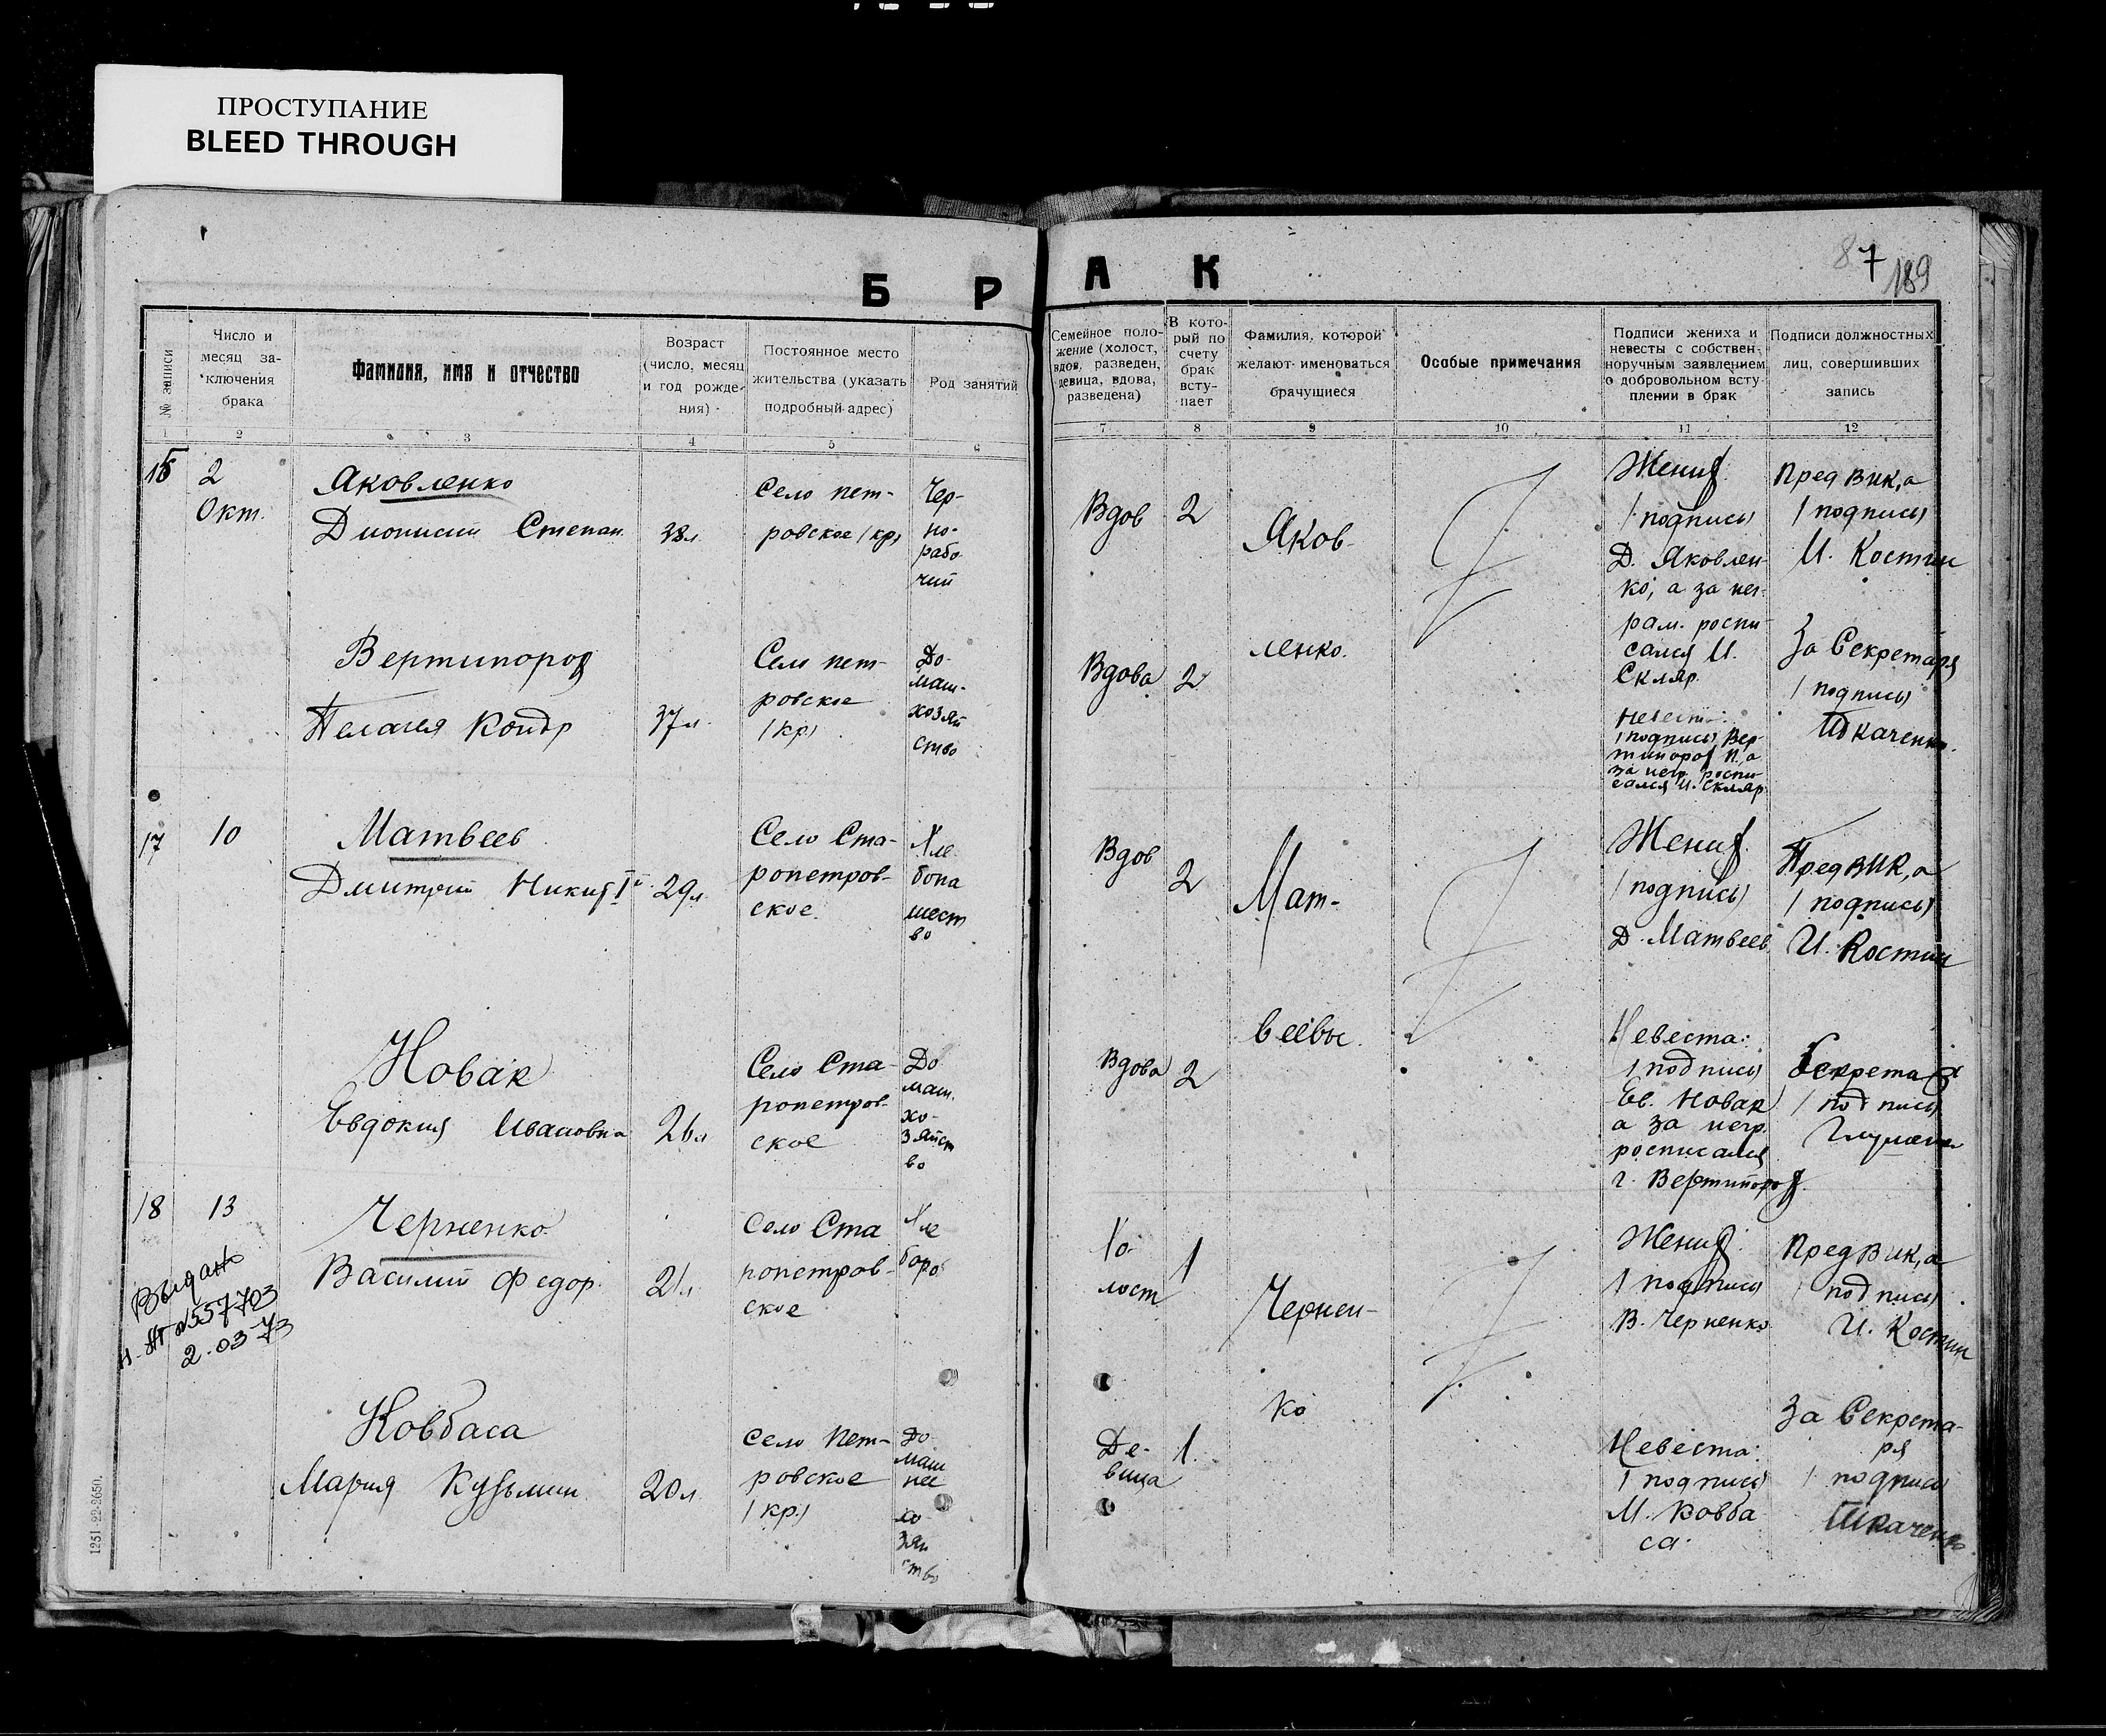 ПРОСТУПАНИЕ
BLEED THROUGH
87
189
Б Р А К
№ записи
Число и месяц за-
ключения брака
Фамилия, имя и отчество
Возраст (число, месяц и год рожде-
ния)
Постоянное место жительства (указать подробный адрес)
Род занятий
Семейное поло-
жение (холост, вдов, разведен, девица, вдова, разведена)
В кото-
рый по счету брак всту-
пает
Фамилия, которой желают именоваться брачущиеся
Особые примечания
Подписи жениха и невесты с собствен-
норучным заявлением о добровольном всту-
плении в брак
Подписи должностных лиц, совершивших запись
1 2 3 4 5 6 7 8 9 10 11 12
16
2
Окт.
Яковленко
Дионисий Степан.
38 л.
Село пет-
ровское /кр/
Чер-
но-
рабо-
чий
Вдов
2
Яков-
Жених
/подпись/
Д. Яковлен-
ко, а за нег-
рам. роспи-
сался И.
Скляр.
Пред вик,а
/подпись/
И. Костин
Вертипорог
Пелагея Кондр
37 л.
Село пет-
ровское
/кр/
До-
маш-
хозяй
ство
Вдова
2
ленко.
Невеста:
/подпись/ Вер-
типорог П., а
за негр. роспи-
сался И. Скляр.
За Секретаря
/подпись/
Ткаченко.
17
10
Матвеев
Дмитрий Никит Iй
29 л.
Село Ста-
ропетров-
ское.
Хле
бопа
шест
во
Вдов
2
Мат-
Жених
/подпись/
Д. Матвеев
Пред ВИК,а
/подпись/
И. Костин
Новак
Евдокия Ивановна
26 л
Село Ста-
ропетров-
ское
До
маш.
хо-
зяйст
во
Вдова
2
веевы.
Невеста:
/подпись/
Ев. Новак
а за негр.
росписался
г. Вертипорог.
Секретарь
/подпись
18
13
Черненко
Василий Федор.
21 л
Село Ста
ропетров-
ское
Хле
бороб
Хо-
лост
1
Чернен-
Жених
/подпись/
В. Черненко
Пред вик,а
/подпись/
И. Костин
Выдано
557703
2.03-73
Ковбаса
Мария Кузьмин.
20 л
село Пет-
ровское
/кр./
До-
маш
нее
хо
зяй
ство
Де-
вица
1.
ко
Невеста:
/подпись/
М. Ковба
са.
За Секрета-
ря
/подпись/
Ткаченко
1251-22-2650.